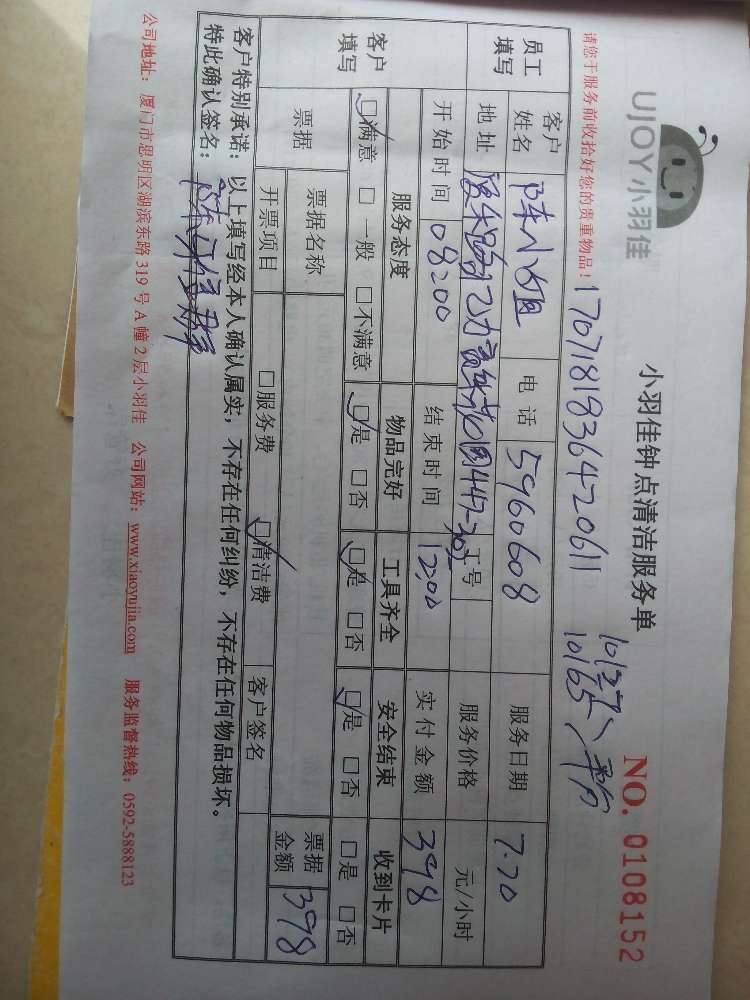 UJOY小羽佳
小羽佳钟点清洁服务单
NO. 0108152
请您于服务前收拾好您的贵重物品!
17071819836420611
10137
10165
员工填写 客户姓名 陈小姐 电话 5960608 服务日期 7.20
地址 工号 服务价格 元/小时
开始时间 08:00 结束时间 12:00 实付金额 398
客户填写 服务态度 物品完好 工具齐全 安全结束 收到卡片
□满意 □一般 □不满意 □是 □否 □是 □否 □是 □否 □是 □否
票据 票据名称 票据金额 398
开票项目 □服务费 □清洁费 客户签名
客户特别承诺:以上填写经本人确认属实,不存在任何纠纷,不存在任何物品损坏。
特此确认签名:
公司地址:厦门市思明区湖滨东路319号A幢2层小羽佳 公司网站:www.xiaoyujia.com 服务监督热线:0592-5888123